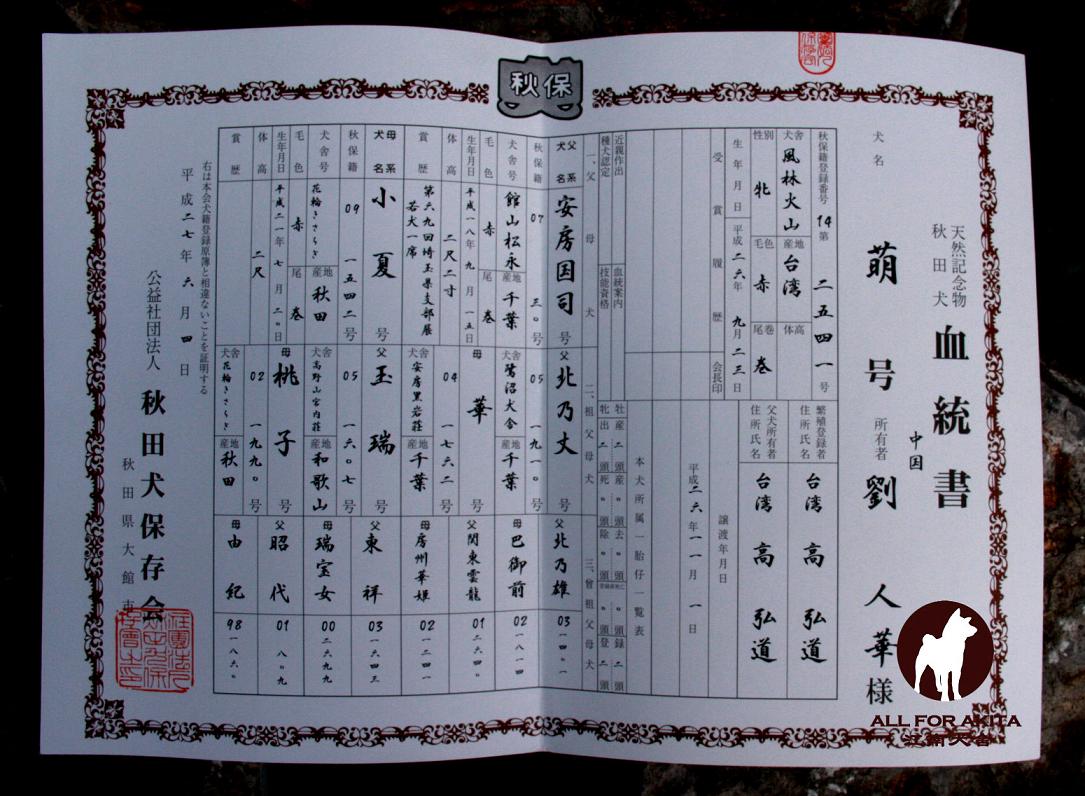 秋保
天然記念物
秋田犬
血統書
犬名
萌号
所有者
中国
劉人華様
秋保籍登録番号 14第二五四一号
犬舎 風林火山
産地 台湾
体高
性別 牝
毛色 赤
尾 巻
生年月日 平成二六年九月二三日
受賞履歴
会長印
繁殖登録者住所氏名 台湾 高弘道
父犬所有者住所氏名 台湾 高弘道
譲渡年月日
平成二六年一一月一日
本犬所属一胎仔一覧表
近親作出
種犬認定
血統案内
技能資格
一、父母犬
二、祖父母犬
三、曾祖父母犬
父系犬名 安房国司号
秋保籍 07 三〇号
犬舎号 館山松永
産地 千葉
毛色 赤
尾 巻
生年月日 平成一八年九月一五日
体高 二尺二寸
賞歴 第六九回埼玉県支部展
若犬一席
母系犬名 小夏号
秋保籍 09 一五四二号
犬舎号 花輪きさらぎ
産地 秋田
毛色 赤
尾 巻
生年月日 平成二一年七月二〇日
体高 二尺
賞歴
父 北乃丈号
05 一九一〇号
犬舎 鷺沼犬舎
産地 千葉
母 華号
04 一七六二号
犬舎 安房黒岩荘
産地 千葉
父 玉瑞号
05 一六〇七号
犬舎 高野山宮内荘
産地 和歌山
母 桃子号
02 一九九〇号
犬舎 花輪きさらぎ
産地 秋田
父 北乃雄 03 一四〇一
母 巴御前 02 一八一四
父 関東雲龍 01 二六四〇
母 房州華姫 02 一二四一
父 東祥 03 一六四三
母 瑞宝女 00 二六九九
父 昭代 01 八〇九
母 由紀 98 一八六〇
右は本会犬籍登録原簿と相違ないことを証明する
平成二七年六月四日
公益社団法人 秋田犬保存会
秋田県大館市
ALL FOR AKITA